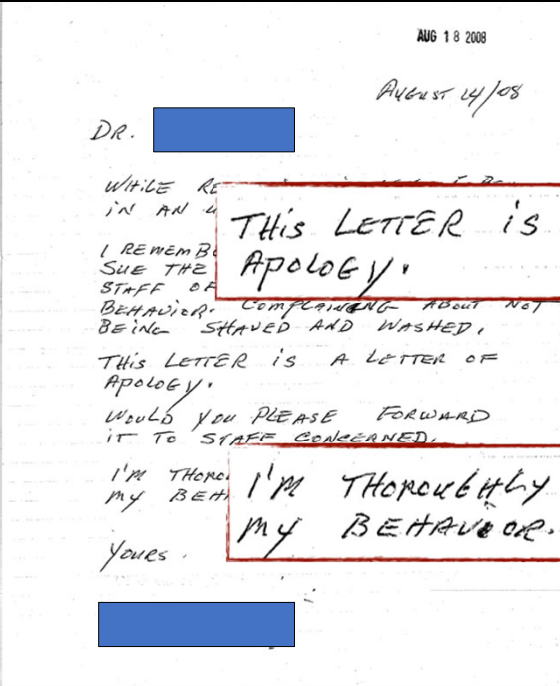 AUG 18 2008
AUGUST 14/08
DR.
WHILE
IN AN
THIS LETTER IS
APOLOGY.
I REMEMB
SUE THE
STAFF OF
BEHAVIOR. COMPLAINING ABOUT NOT
BEING SHAVED AND WASHED.
THIS LETTER IS A LETTER OF
APOLOGY.
WOULD YOU PLEASE FORWARD
IT TO STAFF CONCERNED.
I'M THORO
MY BEH
I'M THOROUGHLY
MY BEHAVIOR.
YOURS